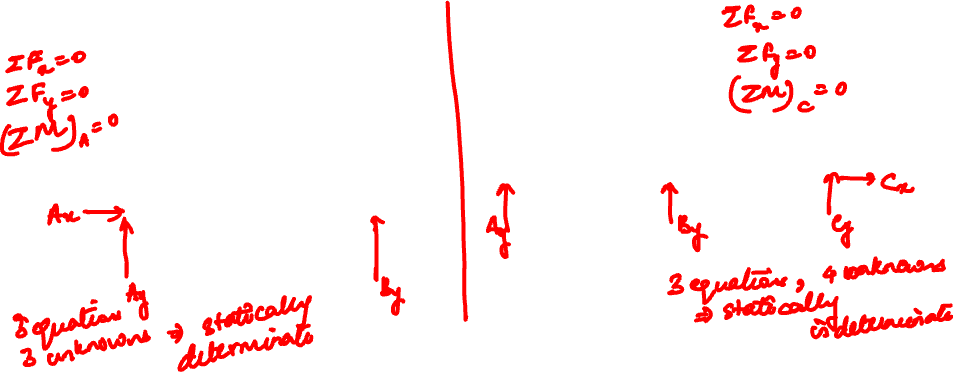 ΣFx=0
ΣFy=0
(ΣM)A=0
Ax
Ay
By
3 equations
3 unknowns ⇒ statically
determinate
ΣFx=0
ΣFy=0
(ΣM)C=0
Ay
By
Cy
Cx
3 equations, 4 unknowns
⇒ statically
indeterminate